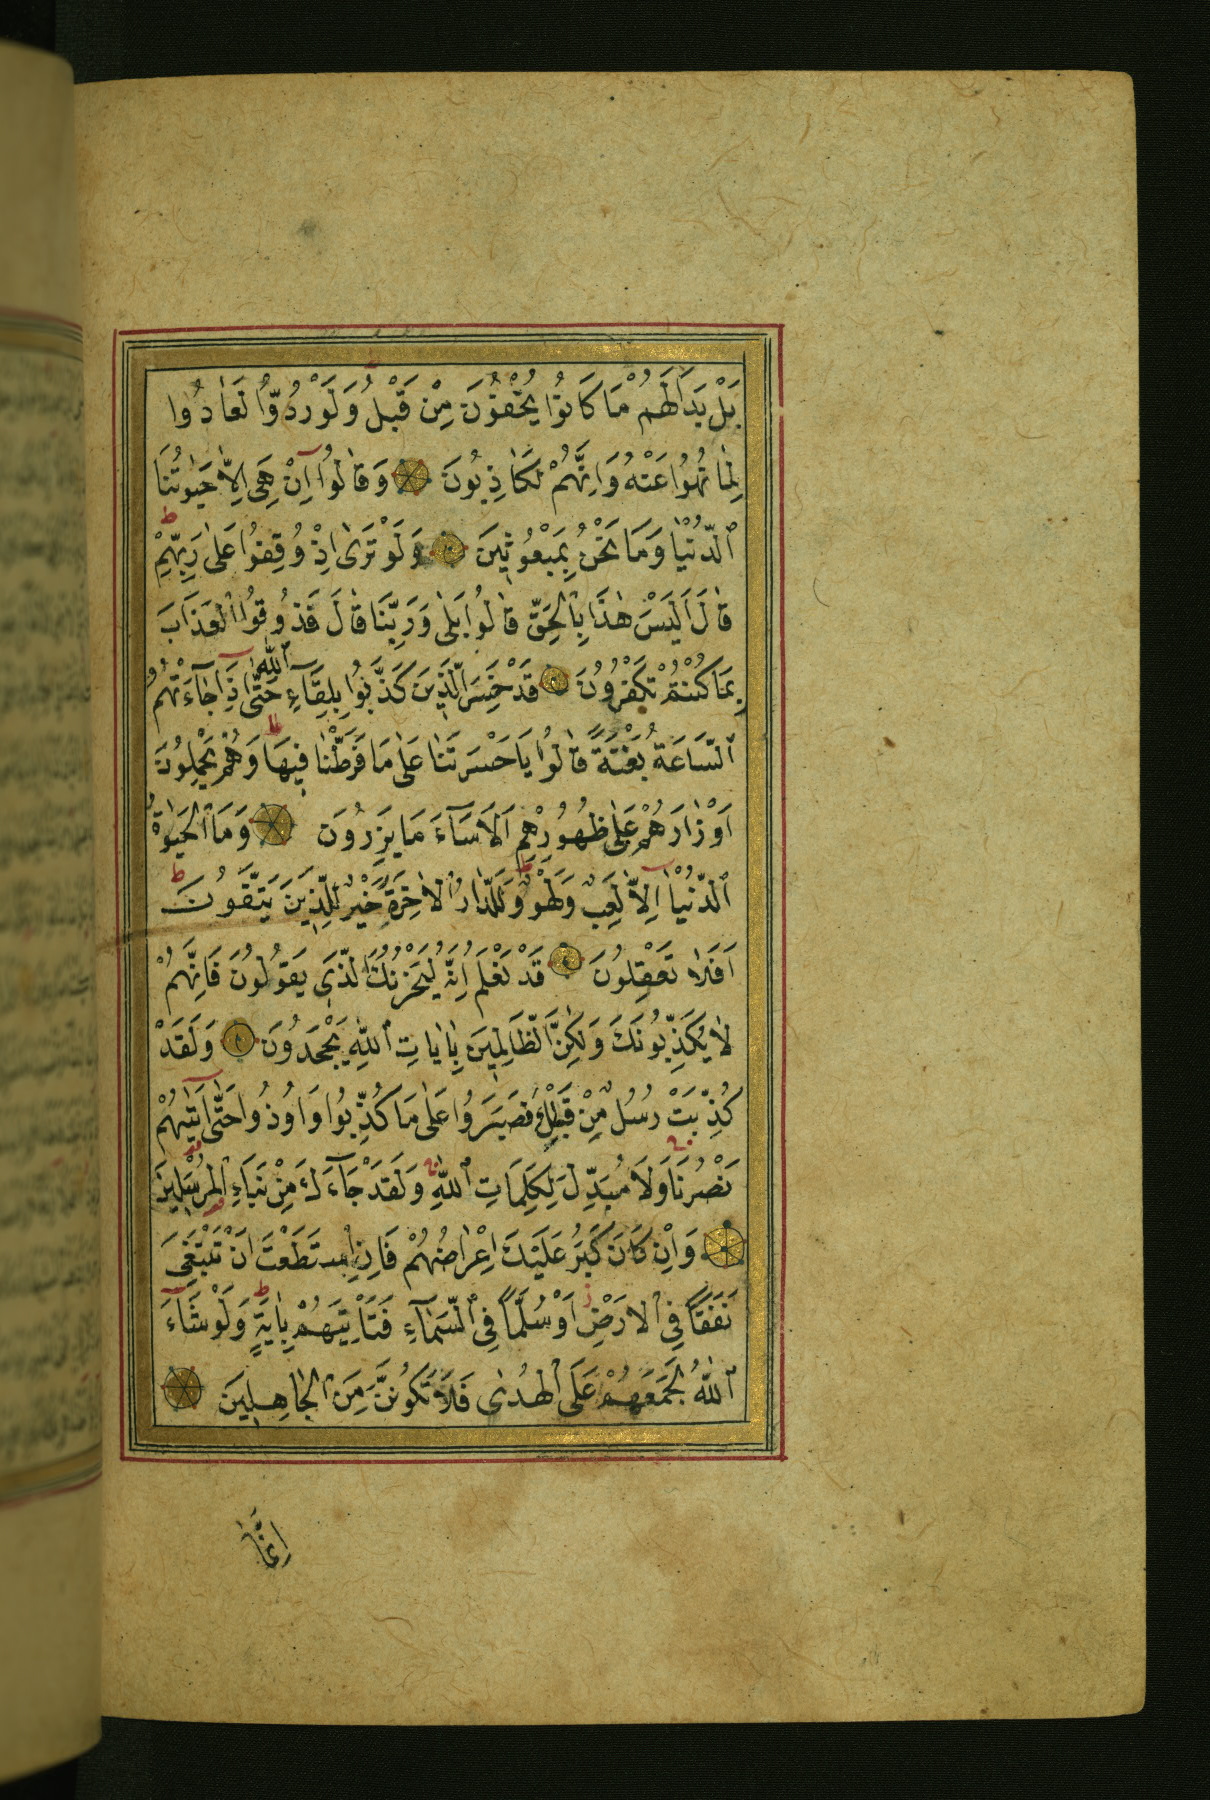 بَلْ بَدَالَهُمْ مَا كَانُوا يُخْفُونَ مِنْ قَبْلُ وَلَوْ رُدُّوا لَعَادُوا
لِمَا نُهُوا عَنْهُ وَاِنَّهُمْ لَكَاذِبُونَ وَقَالُوا اِنْ هِىَ اِلَّا حَيٰوتُنَا
ٱلدُّنْيَا وَمَا نَحْنُ بِمَبْعُوثِينَ وَلَوْ تَرٰى اِذْ وُقِفُوا عَلٰى رَبِّهِمْ
قَالَ اَلَيْسَ هٰذَا بِالْحَقِّ قَالُوا بَلٰى وَرَبِّنَا قَالَ فَذُوقُوا الْعَذَابَ
بِمَا كُنْتُمْ تَكْفُرُونَ قَدْ خَسِرَ الَّذِينَ كَذَّبُوا بِلِقَاءِ ٱللّٰهِ حَتّٰى اِذَا جَاءَتْهُمُ
ٱلسَّاعَةُ بَغْتَةً قَالُوا يَا حَسْرَتَنَا عَلٰى مَا فَرَّطْنَا فِيهَا وَهُمْ يَحْمِلُونَ
اَوْزَارَهُمْ عَلٰى ظُهُورِهِمْ اَلَا سَآءَ مَا يَزِرُونَ وَمَا ٱلْحَيٰوةُ
ٱلدُّنْيَا اِلَّا لَعِبٌ وَلَهْوٌ وَلَلدَّارُ ٱلْاٰخِرَةُ خَيْرٌ لِلَّذِينَ يَتَّقُونَ
اَفَلَا تَعْقِلُونَ قَدْ نَعْلَمُ اِنَّهُ لَيَحْزُنُكَ الَّذِى يَقُولُونَ فَاِنَّهُمْ
لَا يُكَذِّبُونَكَ وَلٰكِنَّ الظَّالِمِينَ بِاٰيَاتِ ٱللّٰهِ يَجْحَدُونَ وَلَقَدْ
كُذِّبَتْ رُسُلٌ مِنْ قَبْلِكَ فَصَبَرُوا عَلٰى مَا كُذِّبُوا وَاُوذُوا حَتّٰى اَتٰيهُمْ
نَصْرُنَا وَلَا مُبَدِّلَ لِكَلِمَاتِ ٱللّٰهِ وَلَقَدْ جَآءَكَ مِنْ نَبَاءِ الْمُرْسَلِينَ
وَاِنْ كَانَ كَبُرَ عَلَيْكَ اِعْرَاضُهُمْ فَاِنِ اسْتَطَعْتَ اَنْ تَبْتَغِىَ
نَفَقًا فِى ٱلْاَرْضِ اَوْ سُلَّمًا فِى ٱلسَّمَآءِ فَتَاْتِيَهُمْ بِاٰيَةٍ وَلَوْ شَآءَ
ٱللّٰهُ لَجَمَعَهُمْ عَلَى ٱلْهُدٰى فَلَا تَكُونَنَّ مِنَ ٱلْجَاهِلِينَ
اِنَّمَا